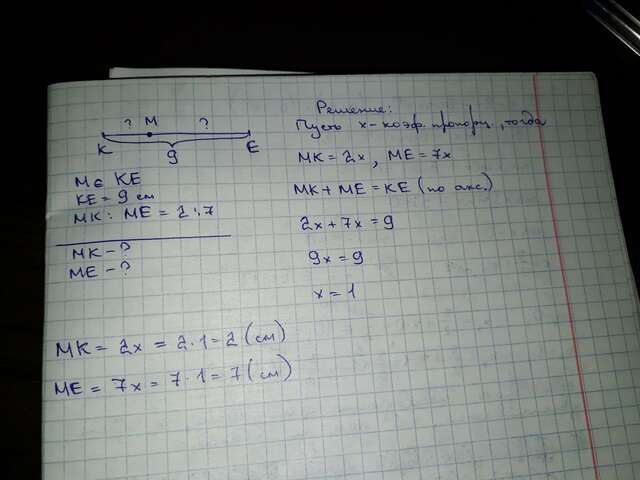 ? M ?
K 9 E
M ∈ KE
KE = 9 см
MK : ME = 2 : 7
MK - ?
ME - ?
Решение:
Пусть x - коэф. пропорц., тогда
MK = 2x, ME = 7x
MK + ME = KE (по акс.)
2x + 7x = 9
9x = 9
x = 1
MK = 2x = 2 · 1 = 2 (см)
ME = 7x = 7 · 1 = 7 (см)